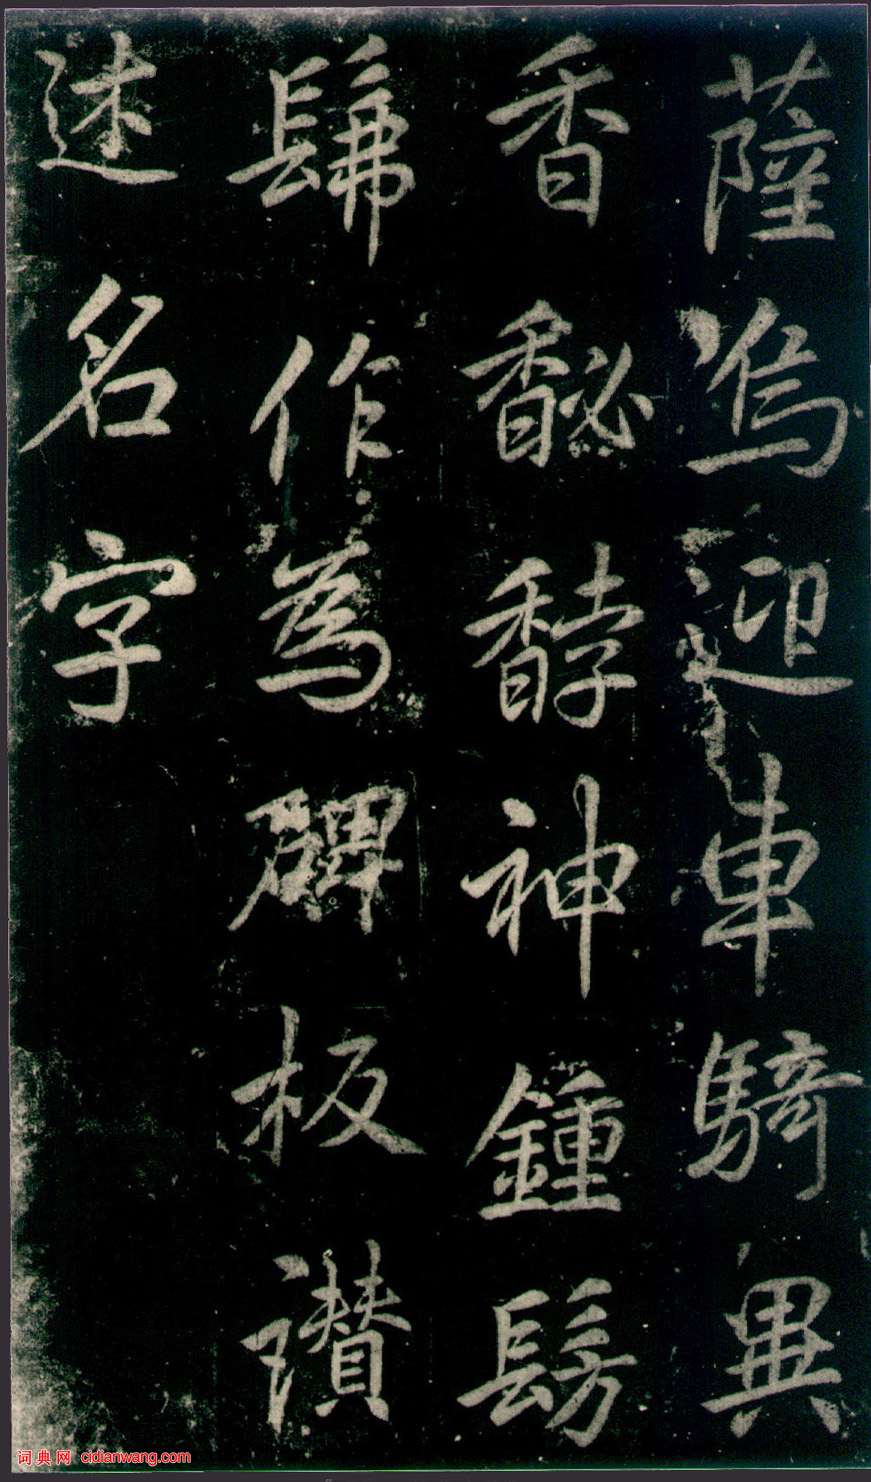 薩馮迎車騎異
香馝馞神鍾髣
髴作為碑板讚
述名字
词典网 cidianwang.com